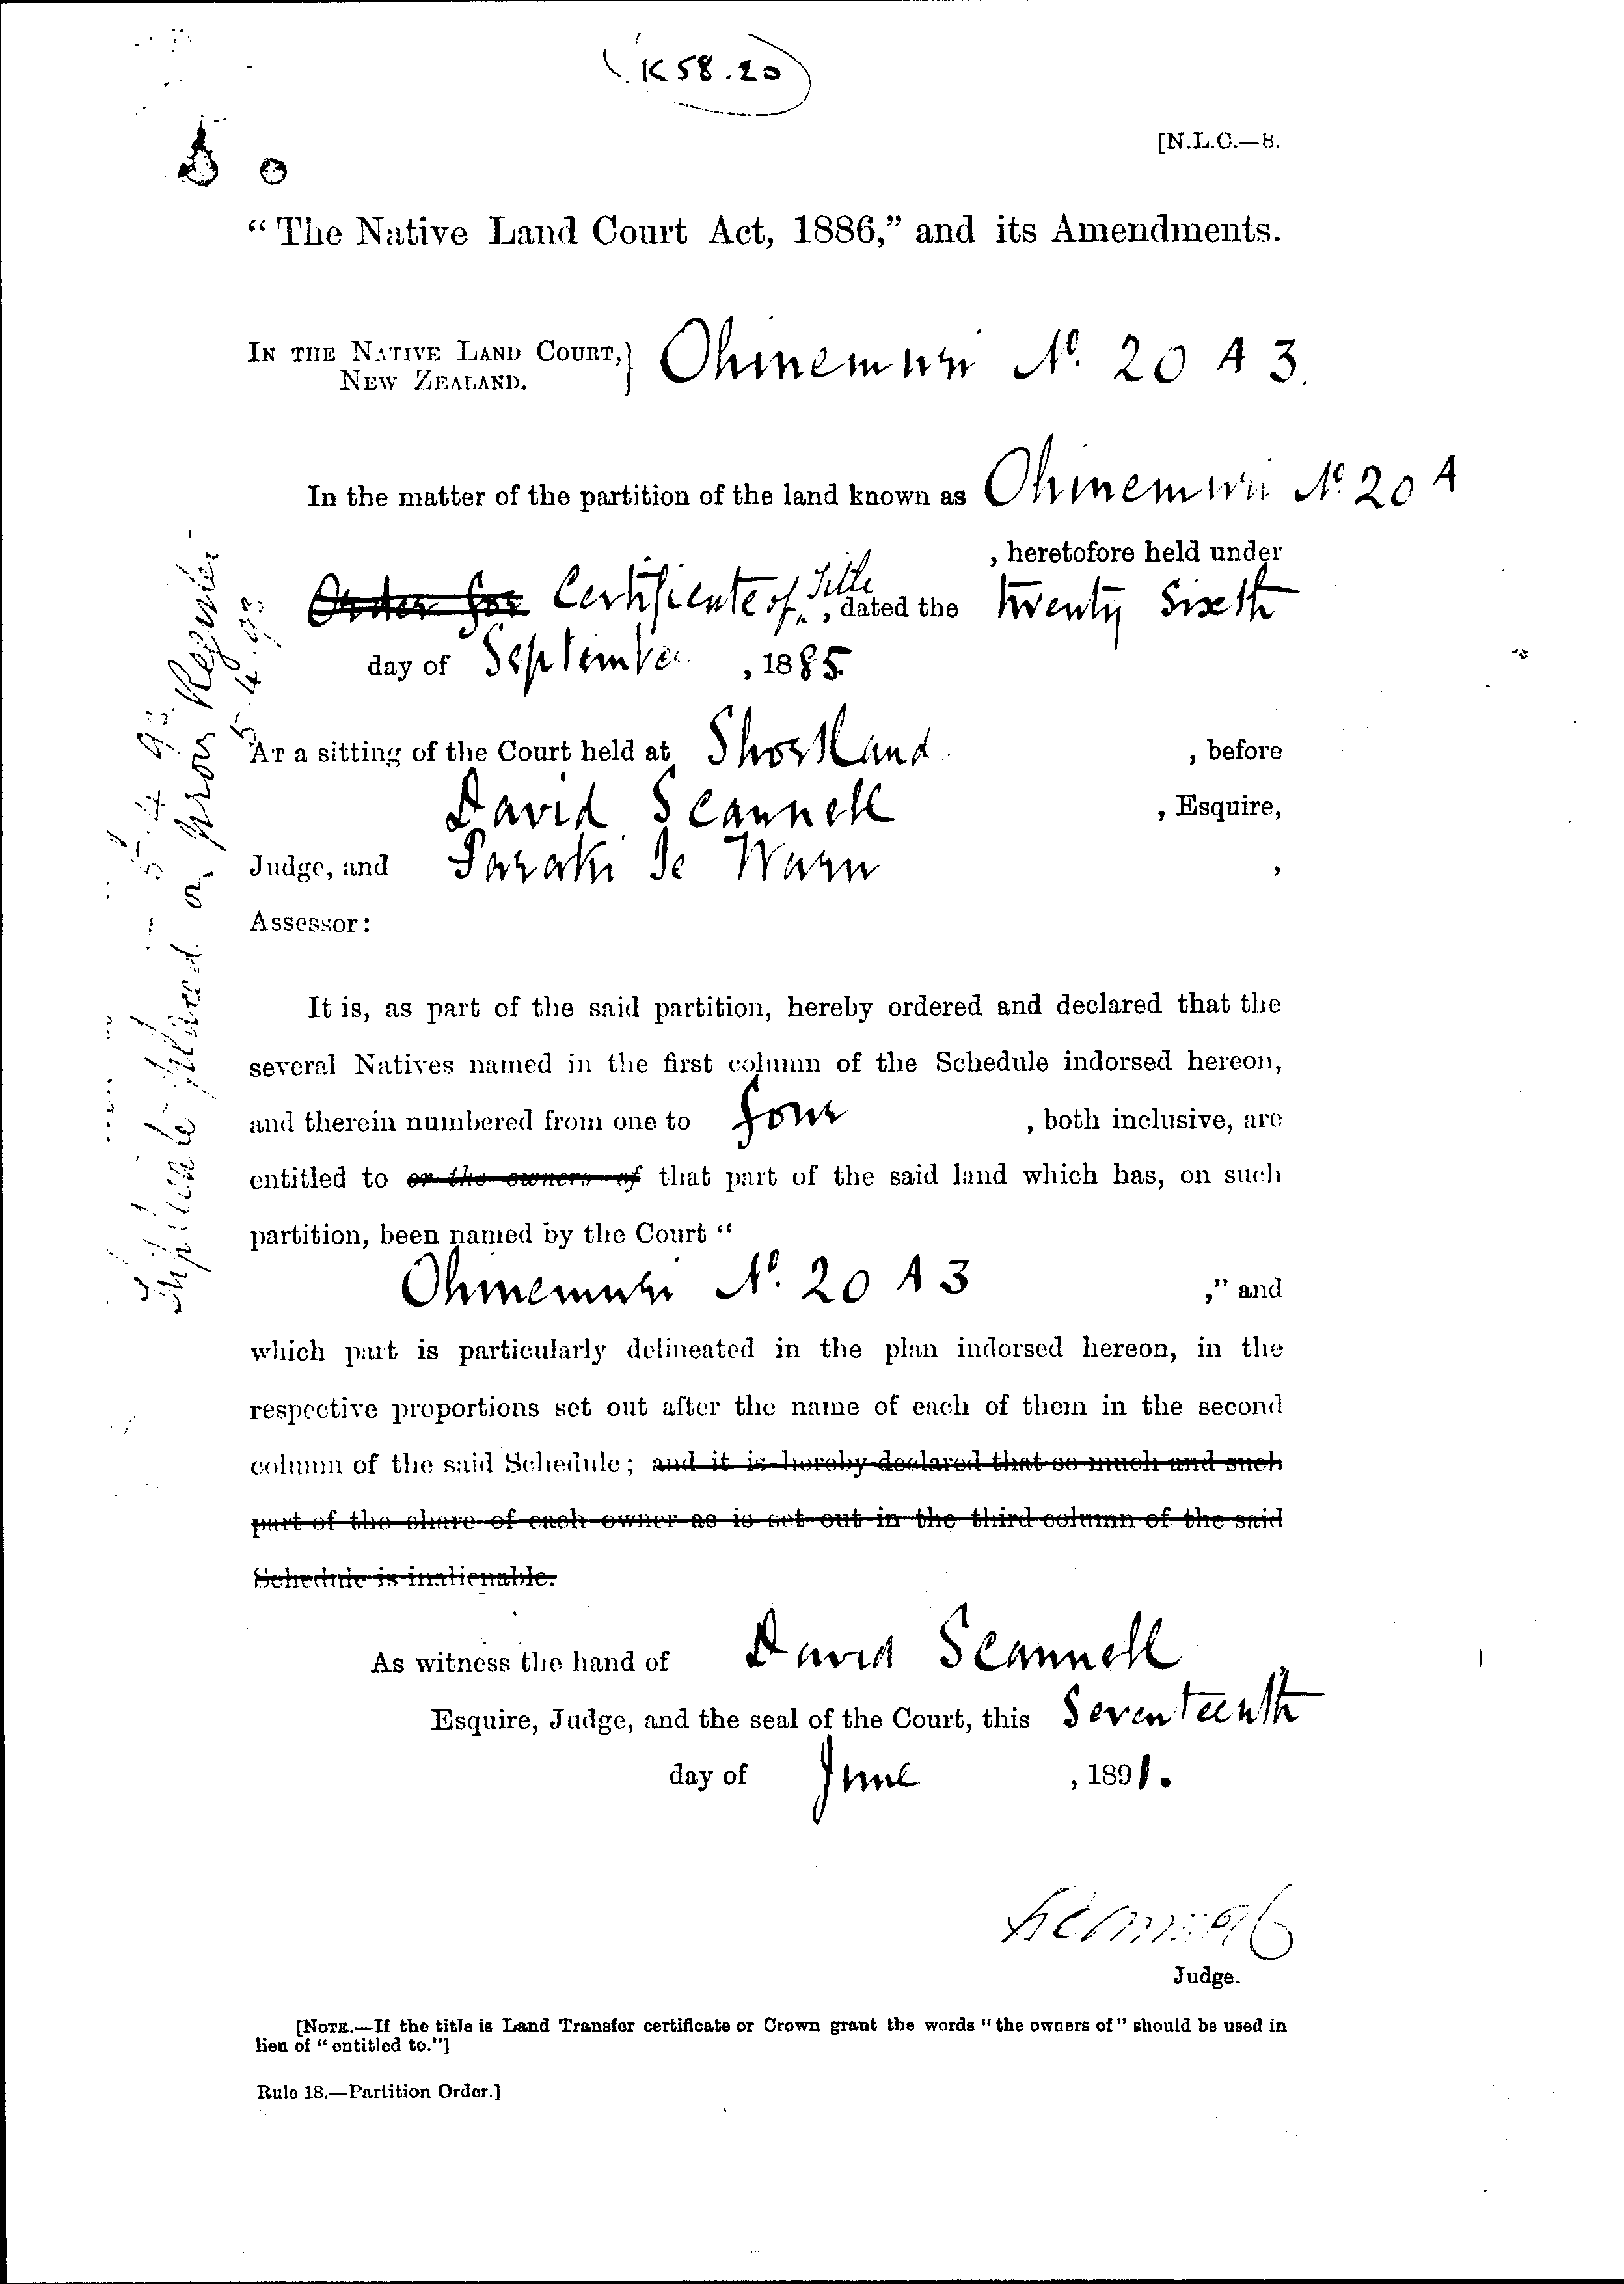 K 58.20
[N.L.C.—8.
“The Native Land Court Act, 1886,” and its Amendments.
IN THE NATIVE LAND COURT,} Ohinemuri No. 20 A 3.
NEW ZEALAND.
In the matter of the partition of the land known as Ohinemuri No. 20 A
, heretofore held under
Order for Certificate of Title, dated the twenty sixth
day of September, 1885
AT a sitting of the Court held at Shortland, before
David Scannell, Esquire,
Judge, and Paraki Te Waru,
Assessor:
It is, as part of the said partition, hereby ordered and declared that the
several Natives named in the first column of the Schedule indorsed hereon,
and therein numbered from one to four, both inclusive, are
entitled to or the owners of that part of the said land which has, on such
partition, been named by the Court “
Ohinemuri No. 20 A 3,” and
which part is particularly delineated in the plan indorsed hereon, in the
respective proportions set out after the name of each of them in the second
column of the said Schedule; and it is hereby declared that so much and such
part of the share of each owner as is set out in the third column of the said
Schedule is inalienable.
As witness the hand of David Scannell
Esquire, Judge, and the seal of the Court, this Seventeenth
day of June, 1891.
Judge.
[NOTE.—If the title is Land Transfer certificate or Crown grant the words “the owners of” should be used in
lieu of “entitled to.”]
Rule 18.—Partition Order.]
Triplicate placed on prov Register
5.4.93
5.4.93